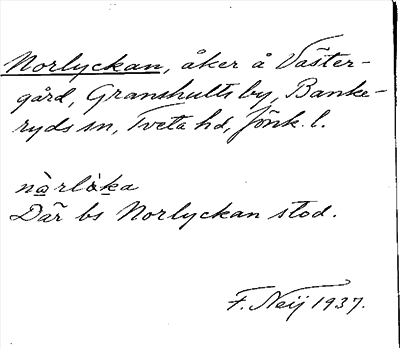 Norlyckan, åker å Väster-
gård, Granshults by, Banke-
ryds sn, Tveta hd, Jönk. l.
nàrlàka
Där bs Norlyckan stod.
F. Neij 1937.